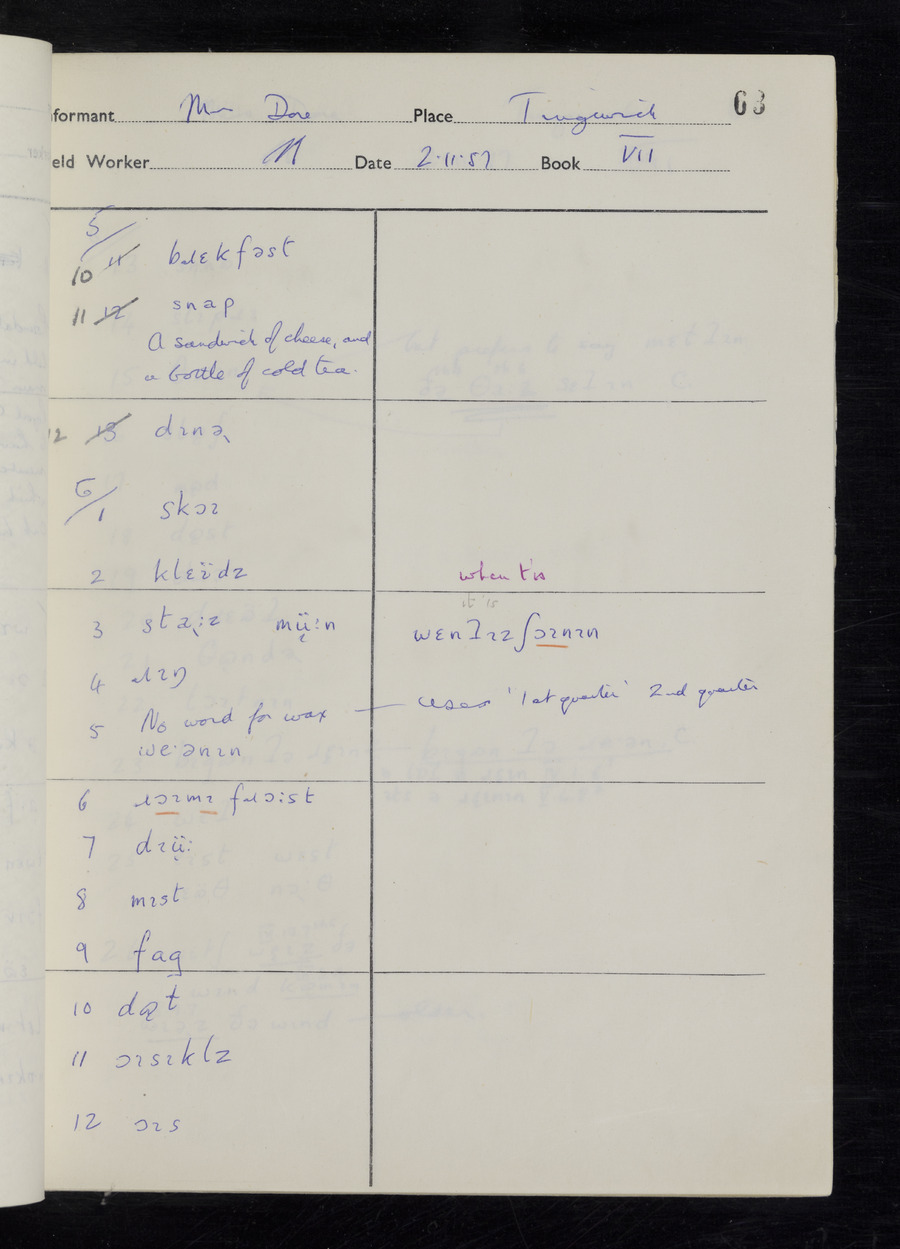 63
formant Mr Dore Place Tingewick
eld Worker Date 2·11·57 Book VII
5/
10 11 bɹɛkfəst
11 12 snap
A sandwich of cheese, and
a bottle of cold tea.
12 13 dɪnə
6/1 skɔɪ
2 klɛïdz
when t'is
it is
3 sta:z mü:n wɛn ɪz ʃɔɪnɪn
4 ɹɪŋ
5 No word for wax — uses '1st quarter' 2nd quarter
we·ənɪn
6 ɹɔɪmɪ fɹɔ:ist
7 dɹü:
8 mɪst
9 fag
10 dɒt
11 ɔɪsɪklz
12 ɔɪs